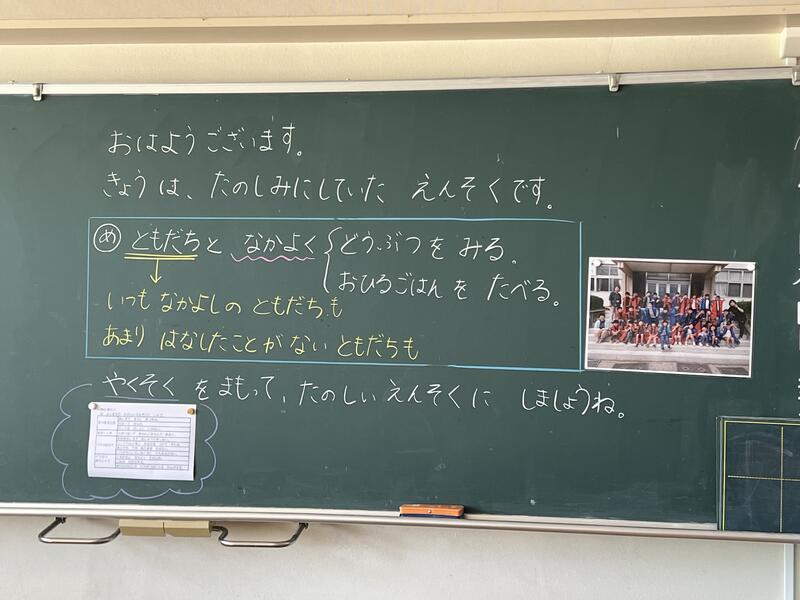 おはようございます。
きょうは、たのしみにしていた えんそくです。
め ともだちと なかよく どうぶつを みる。
おひるごはんを たべる。
いつも なかよしの ともだちも
あまり はなしたことが ない ともだちも
やくそく をまもって、たのしい えんそくに しましょうね。